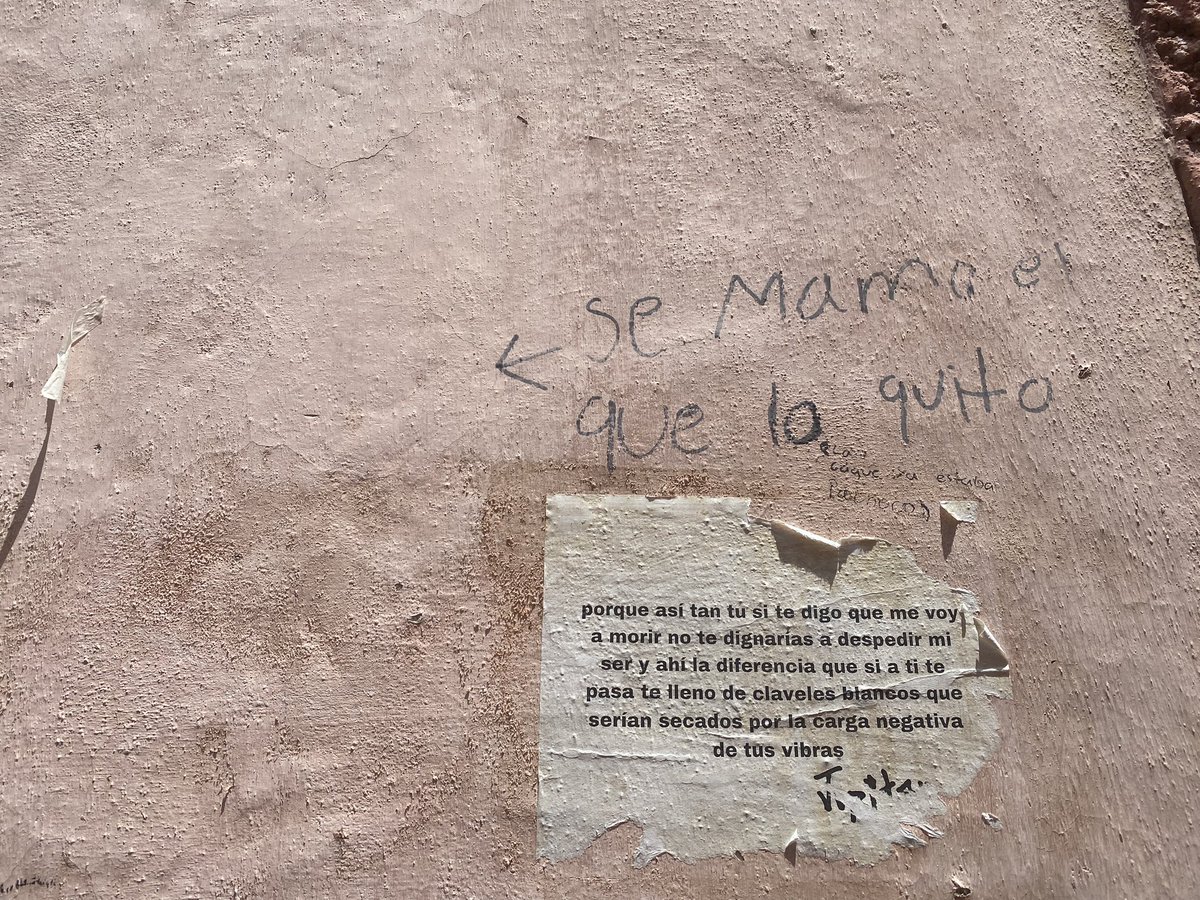 se mamo el
que lo quito
ya estaba
porque así tan tú si te digo que me voy
a morir no te dignarías a despedir mi
ser y ahí la diferencia que si a ti te
pasa te lleno de claveles blancos que
serían secados por la carga negativa
de tus vibras